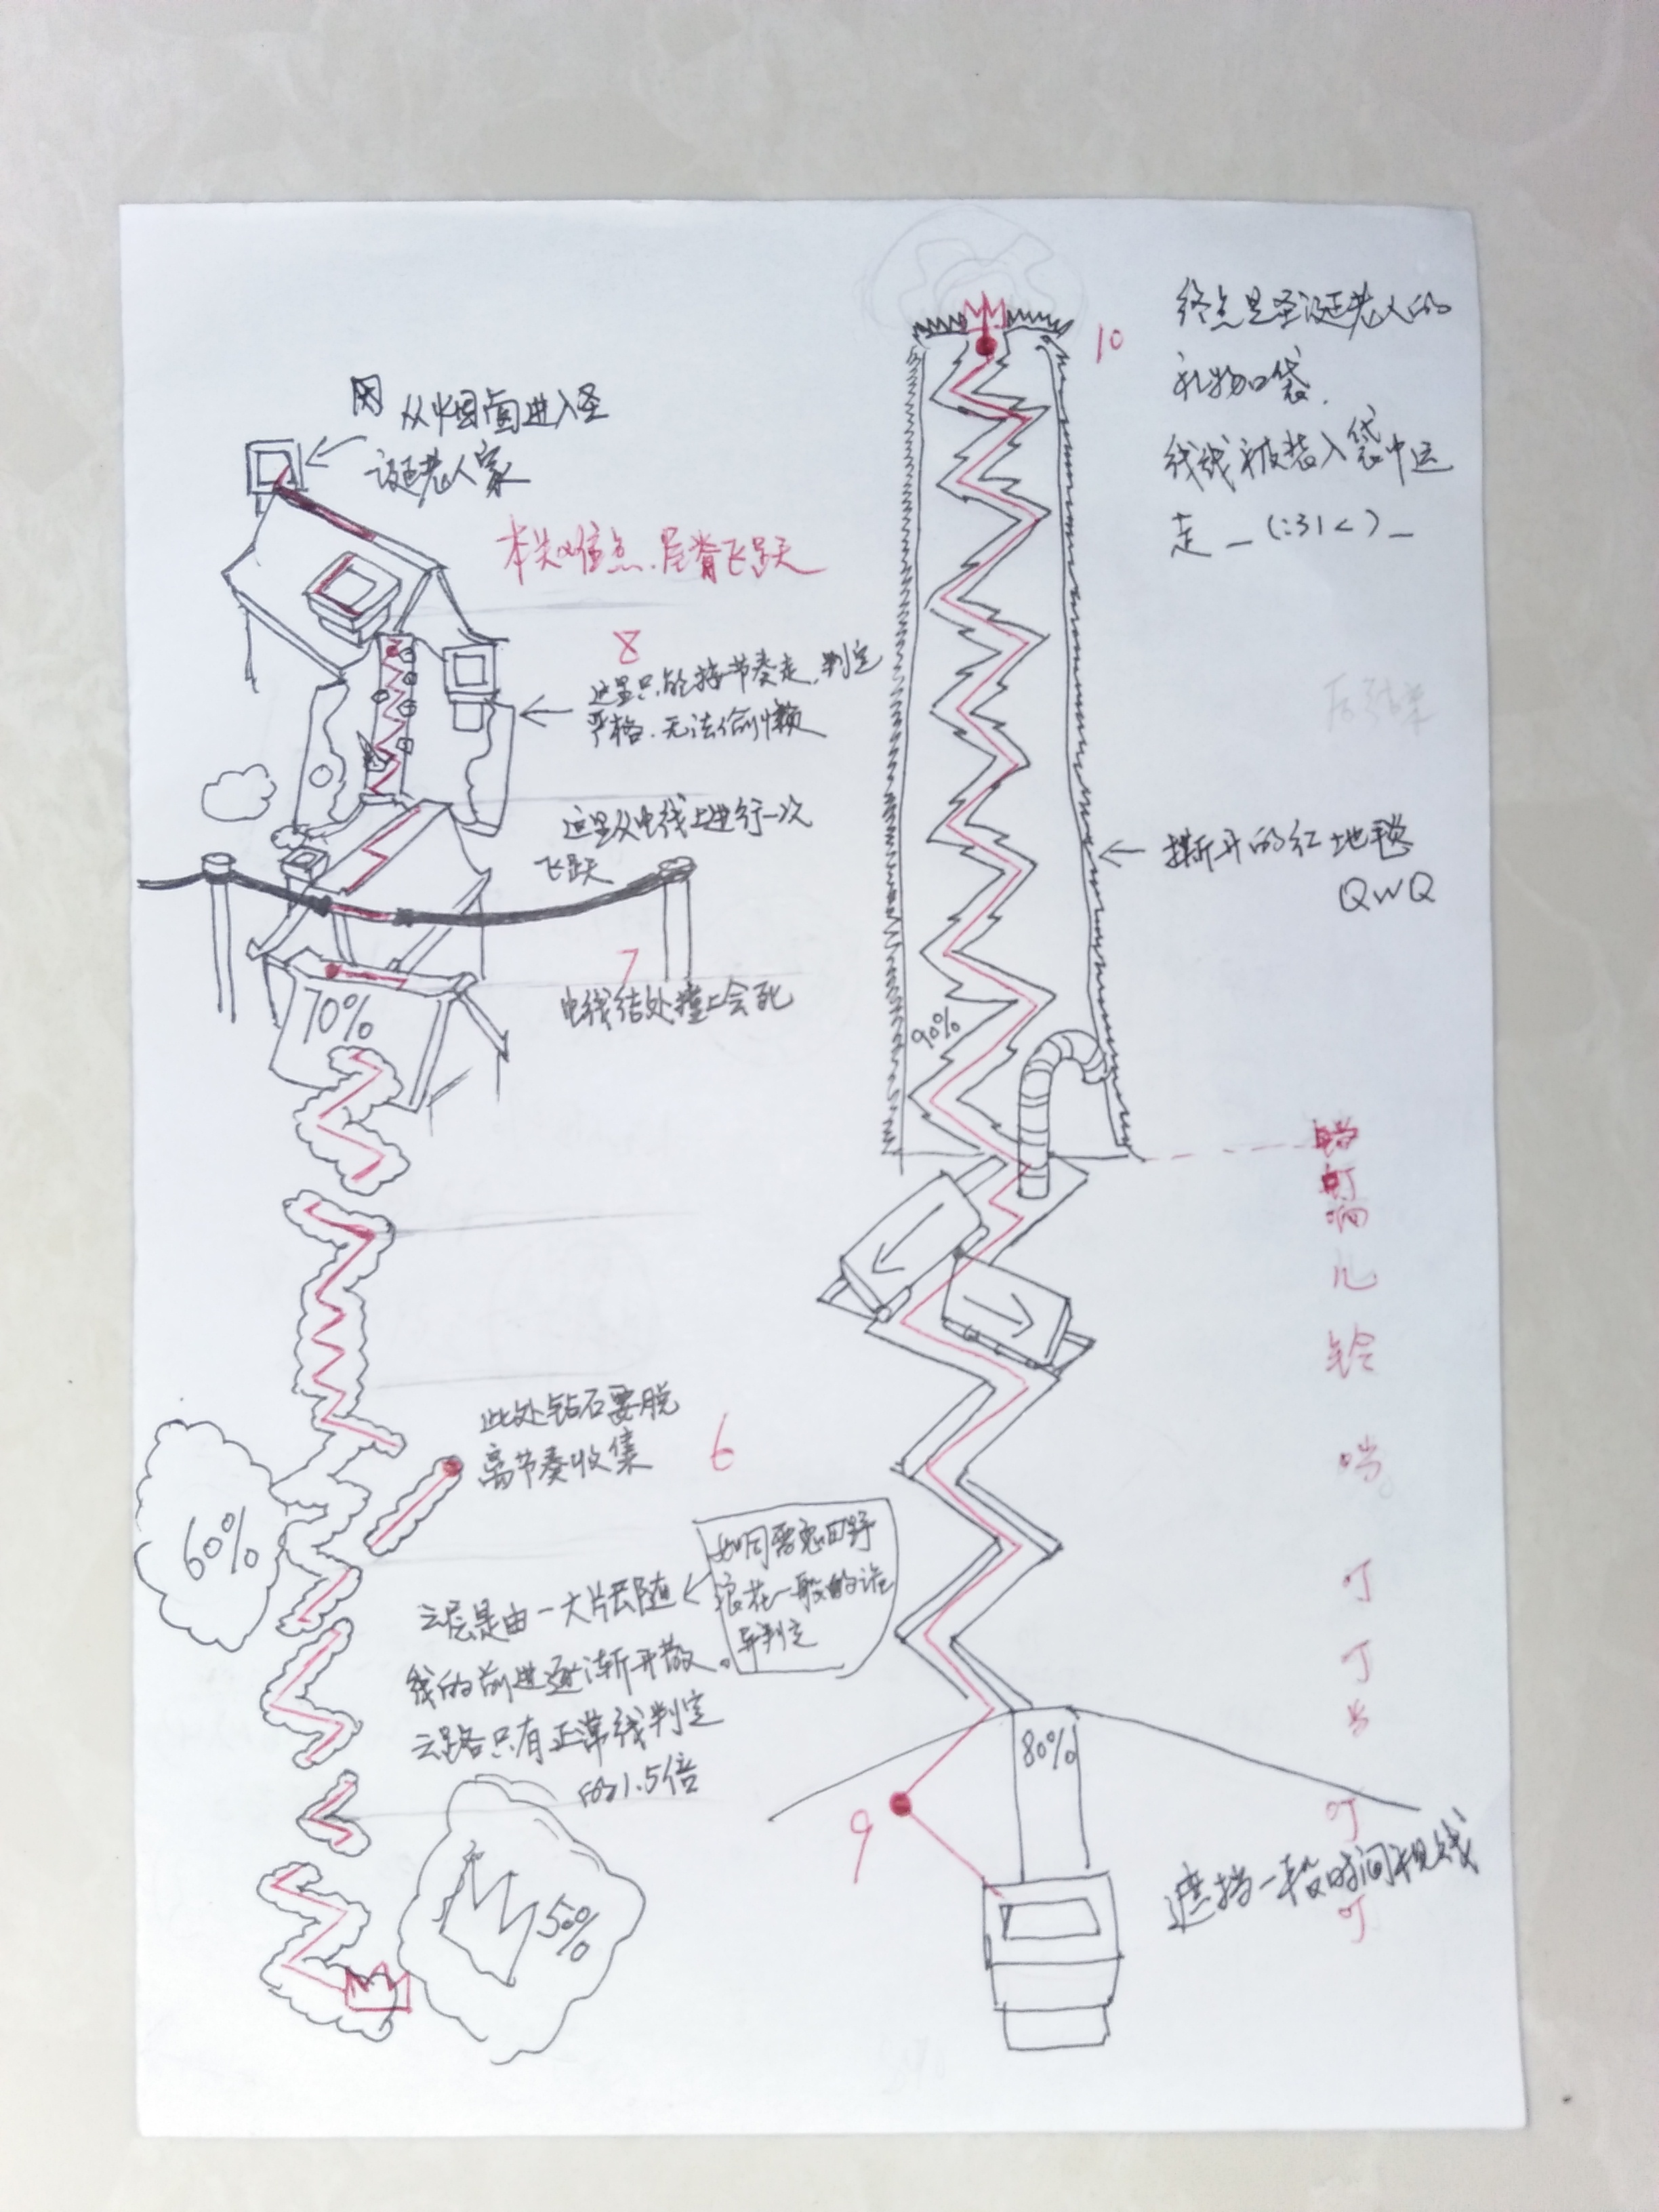 从烟囱进入圣
诞老人家
本关难点.屋脊飞跃
8
这里只能按节奏走.判定
严格.无法偷懒
这里从电线上进行一次
飞跃
7
电线结处撞上会死
70%
此处钻石要脱
离节奏收集
6
60%
云层是由一大片云随
线的前进逐渐开散。
云路只有正常线判定
的1.5倍
浪花一般的诡
异判定
50%
10
终点是圣诞老人的
礼物口袋.
线线被装入袋中运
走_(:31<)_
撕开的红地毯
QWQ
90%
铛
叮
响
儿
铃
当
叮
叮
当
叮
叮
80%
9
遮挡一段时间视线